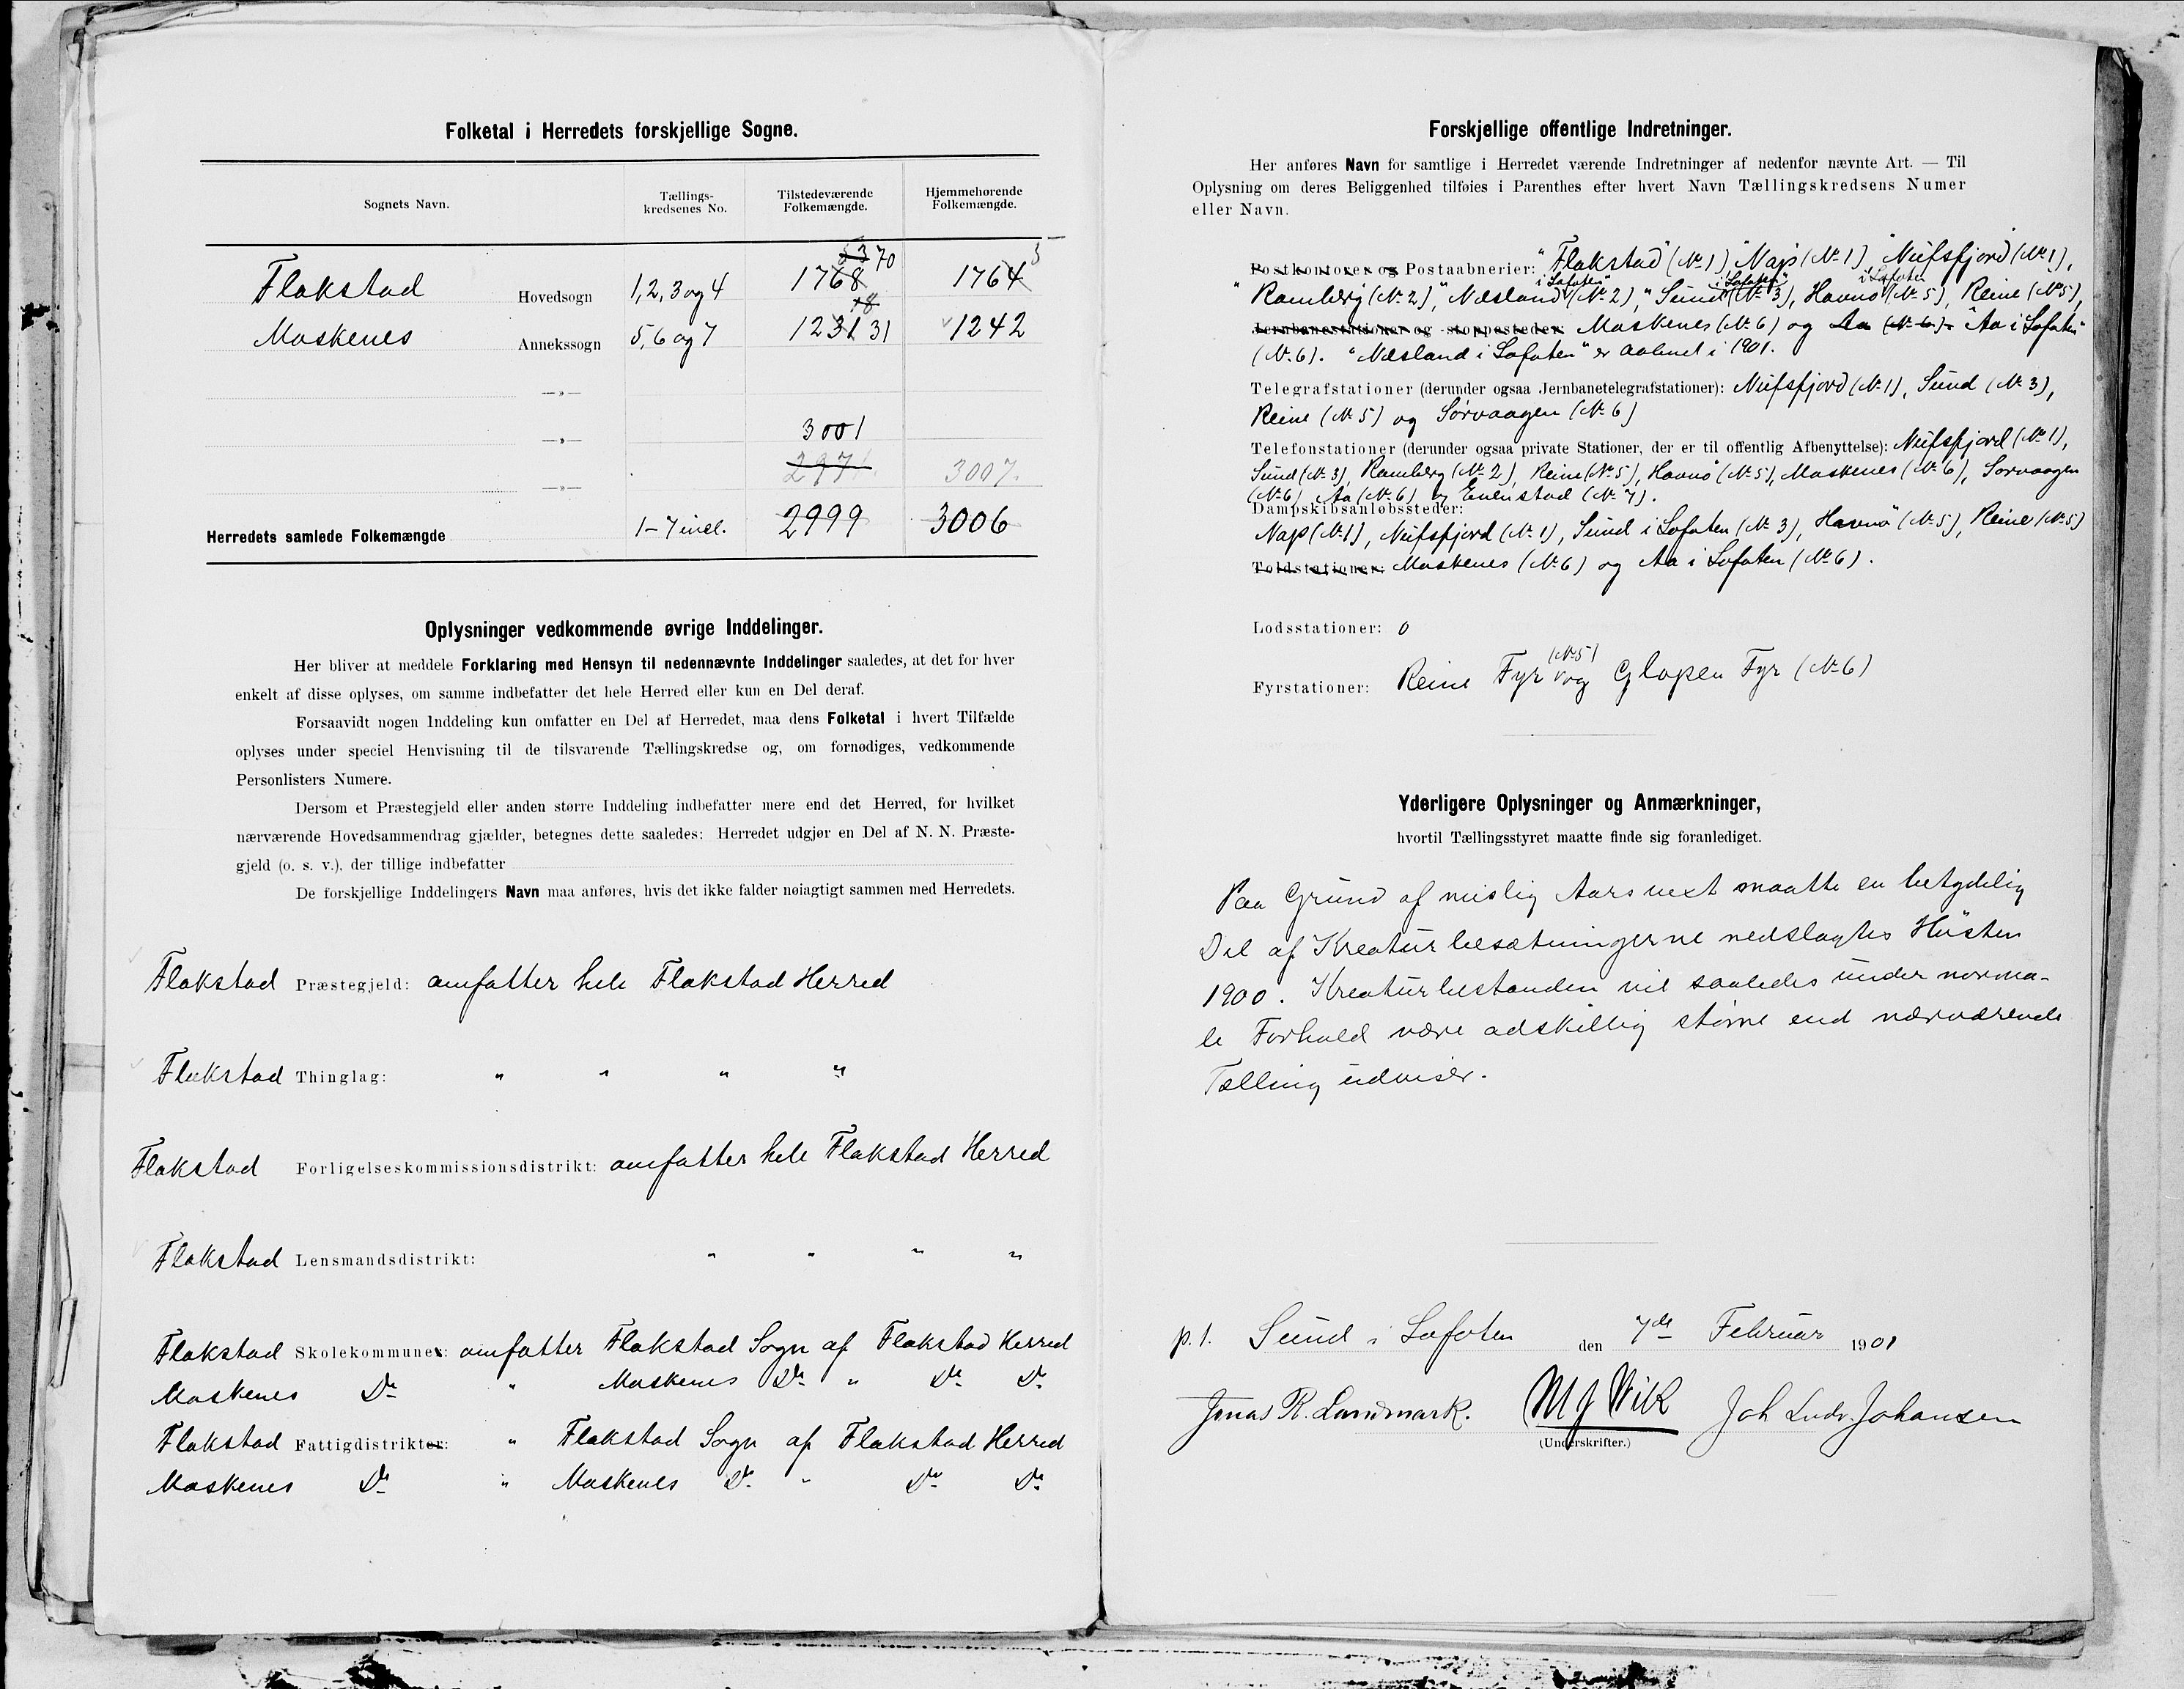 Folketal i Herredets forskjellige Sogne.
Sognets Navn.
Tællings-kredsenes No.
Tilstedeværende Folkemængde.
Hjemmehørende Folkemængde.
Flakstad Hovedsogn 1, 2, 3 og 4 1768 70 1764 3
Moskenes Annekssogn 5, 6 og 7 1231 31 1242
—»—
—»— 3001
—»— 297 3007.
Herredets samlede Folkemængde 1-7 incl. 2999 3006
Oplysninger vedkommende øvrige Inddelinger.
Her bliver at meddele Forklaring med Hensyn til nedennævnte Inddelinger saaledes, at det for hver
enkelt af disse oplyses, om samme indbefatter det hele Herred eller kun en Del deraf.
Forsaavidt nogen Inddeling kun omfatter en Del af Herredet, maa dens Folketal i hvert Tilfælde
oplyses under speciel Henvisning til de tilsvarende Tællingskredse og, om fornødiges, vedkommende
Personlisters Numere.
Dersom et Præstegjeld eller anden større Inddeling indbefatter mere end det Herred, for hvilket
nærværende Hovedsammendrag gjælder, betegnes dette saaledes: Herredet udgjør en Del af N. N. Præste-
gjeld (o. s. v.). der tillige indbefatter
De forskjellige Inddelingers Navn maa anføres, hvis det ikke falder nøiagtigt sammen med Herredets.
Flakstad Præstegjeld: omfatter hele Flakstad Herred
Flakstad Thinglag: " " " "
Flakstad Forligelseskommissionsdistrikt: omfatter hele Flakstad Herred
Flakstad Lensmandsdistrikt: " " " "
Flakstad Skolekommuner: omfatter Flakstad Sogn af Flakstad Herred
Moskenes Do " Moskenes Do " Do Do
Flakstad Fattigdistrikter: " Flakstad Sogn af Flakstad Herred
Moskenes Do " Moskenes Do " Do Do
Forskjellige offentlige Indretninger.
Her anføres Navn for samtlige i Herredet værende Indretninger af nedenfor nævnte Art. — Til
Oplysning om deres Beliggenhed tilføies i Parenthes efter hvert Navn Tællingskredsens Numer
eller Navn.
Postkontorer og Postaabnerier: "Flakstad" (No 1) "Nap" (No 1) "Nufsfjord" (No 1),
i Lofoten" i Lofoten" i Lofoten
"Ramberg (No 2), "Næsland (No 2), "Sund (No 3), Havnø (No 5), Reine (No 5),
Jernbanestationer og -stoppesteder: Moskenes (No 6) og Aa (No 6). "Aa i Lofoten"
(No 6). "Næsland i Lofoten" er aabnet i 1901.
Telegrafstationer (derunder ogsaa Jernbanetelegrafstationer): Nufsfjord (No 1), Sund (No 3),
Reine (No 5) og Sørvaagen (No 6)
Telefonstationer (derunder ogsaa private Stationer, der er til offentlig Afbenyttelse): Nufsfjord (No 1),
Sund (No 3), Ramberg (No 2), Reine (No 5), Havnø (No 5), Moskenes (No 6), Sørvaagen
(No 6), Aa (No 6) og Evenstad (No 7).
Dampskibsanløbssteder:
Nap (No 1), Nufsfjord (No 1), Sund i Lofoten (No 3), Havnø (No 5), Reine (No 5)
Toldstationer: Moskenes (No 6) og Aa i Lofoten (No 6).
Lodsstationer: 0
(No 5)
Fyrstationer: Reine Fyr og Glopen Fyr (No 6)
Yderligere Oplysninger og Anmærkninger,
hvortil Tællingsstyret maatte finde sig foranlediget.
Paa Grund af mislig Aarsvext maatte en betydelig
Del af Kreaturbesætningerne nedslagtes Høsten
1900. Kreaturbestanden vil saaledes under norma-
le Forhold være adskillig større end nærværende
Tælling udviser.
p. t. Sund i Lofoten den 7de Februar 1901
Jonas R. Landmark. M J Wik Joh Ludv. Johansen
(Underskrifter.)